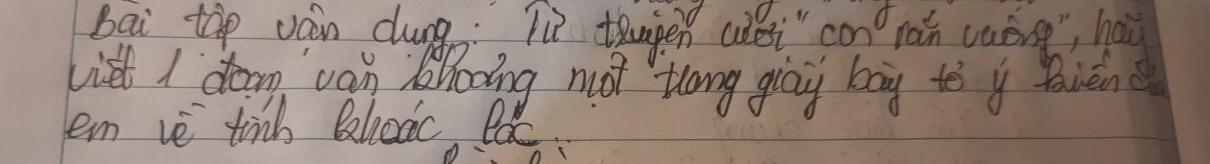 Bài tập vận dụng: Từ truyện cười "con rắn vuông", hãy
viết 1 đoạn văn khoảng một trang giấy bày tỏ ý kiến của
em về tính khoác lác.